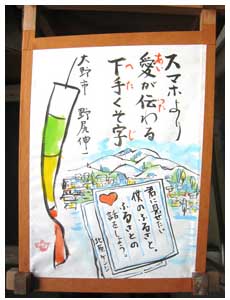 スマホより
愛が伝わる
あい つた
下手くそ字
へた じ
大野市 野尻 伸一
君に見せたい
僕のふるさと。
ふるさとの
話をしよう。